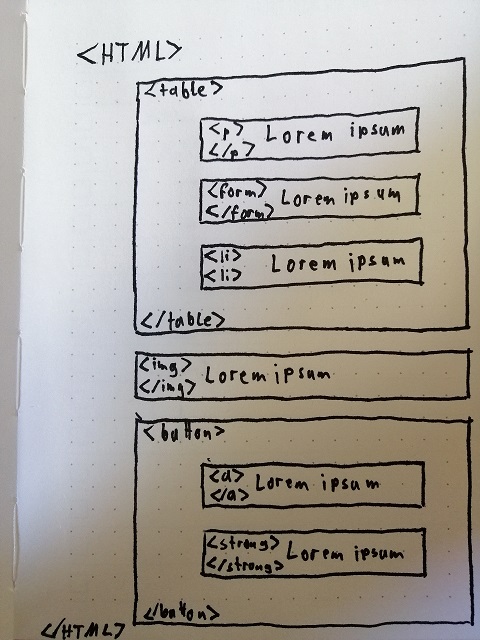 <HTML>
<table>
<p> Lorem ipsum
</p>
<form> Lorem ipsum
</form>
<li> Lorem ipsum
<li>
</table>
<img> Lorem ipsum
</img>
<button>
<a> Lorem ipsum
</a>
<strong> Lorem ipsum
</strong>
</button>
</HTML>